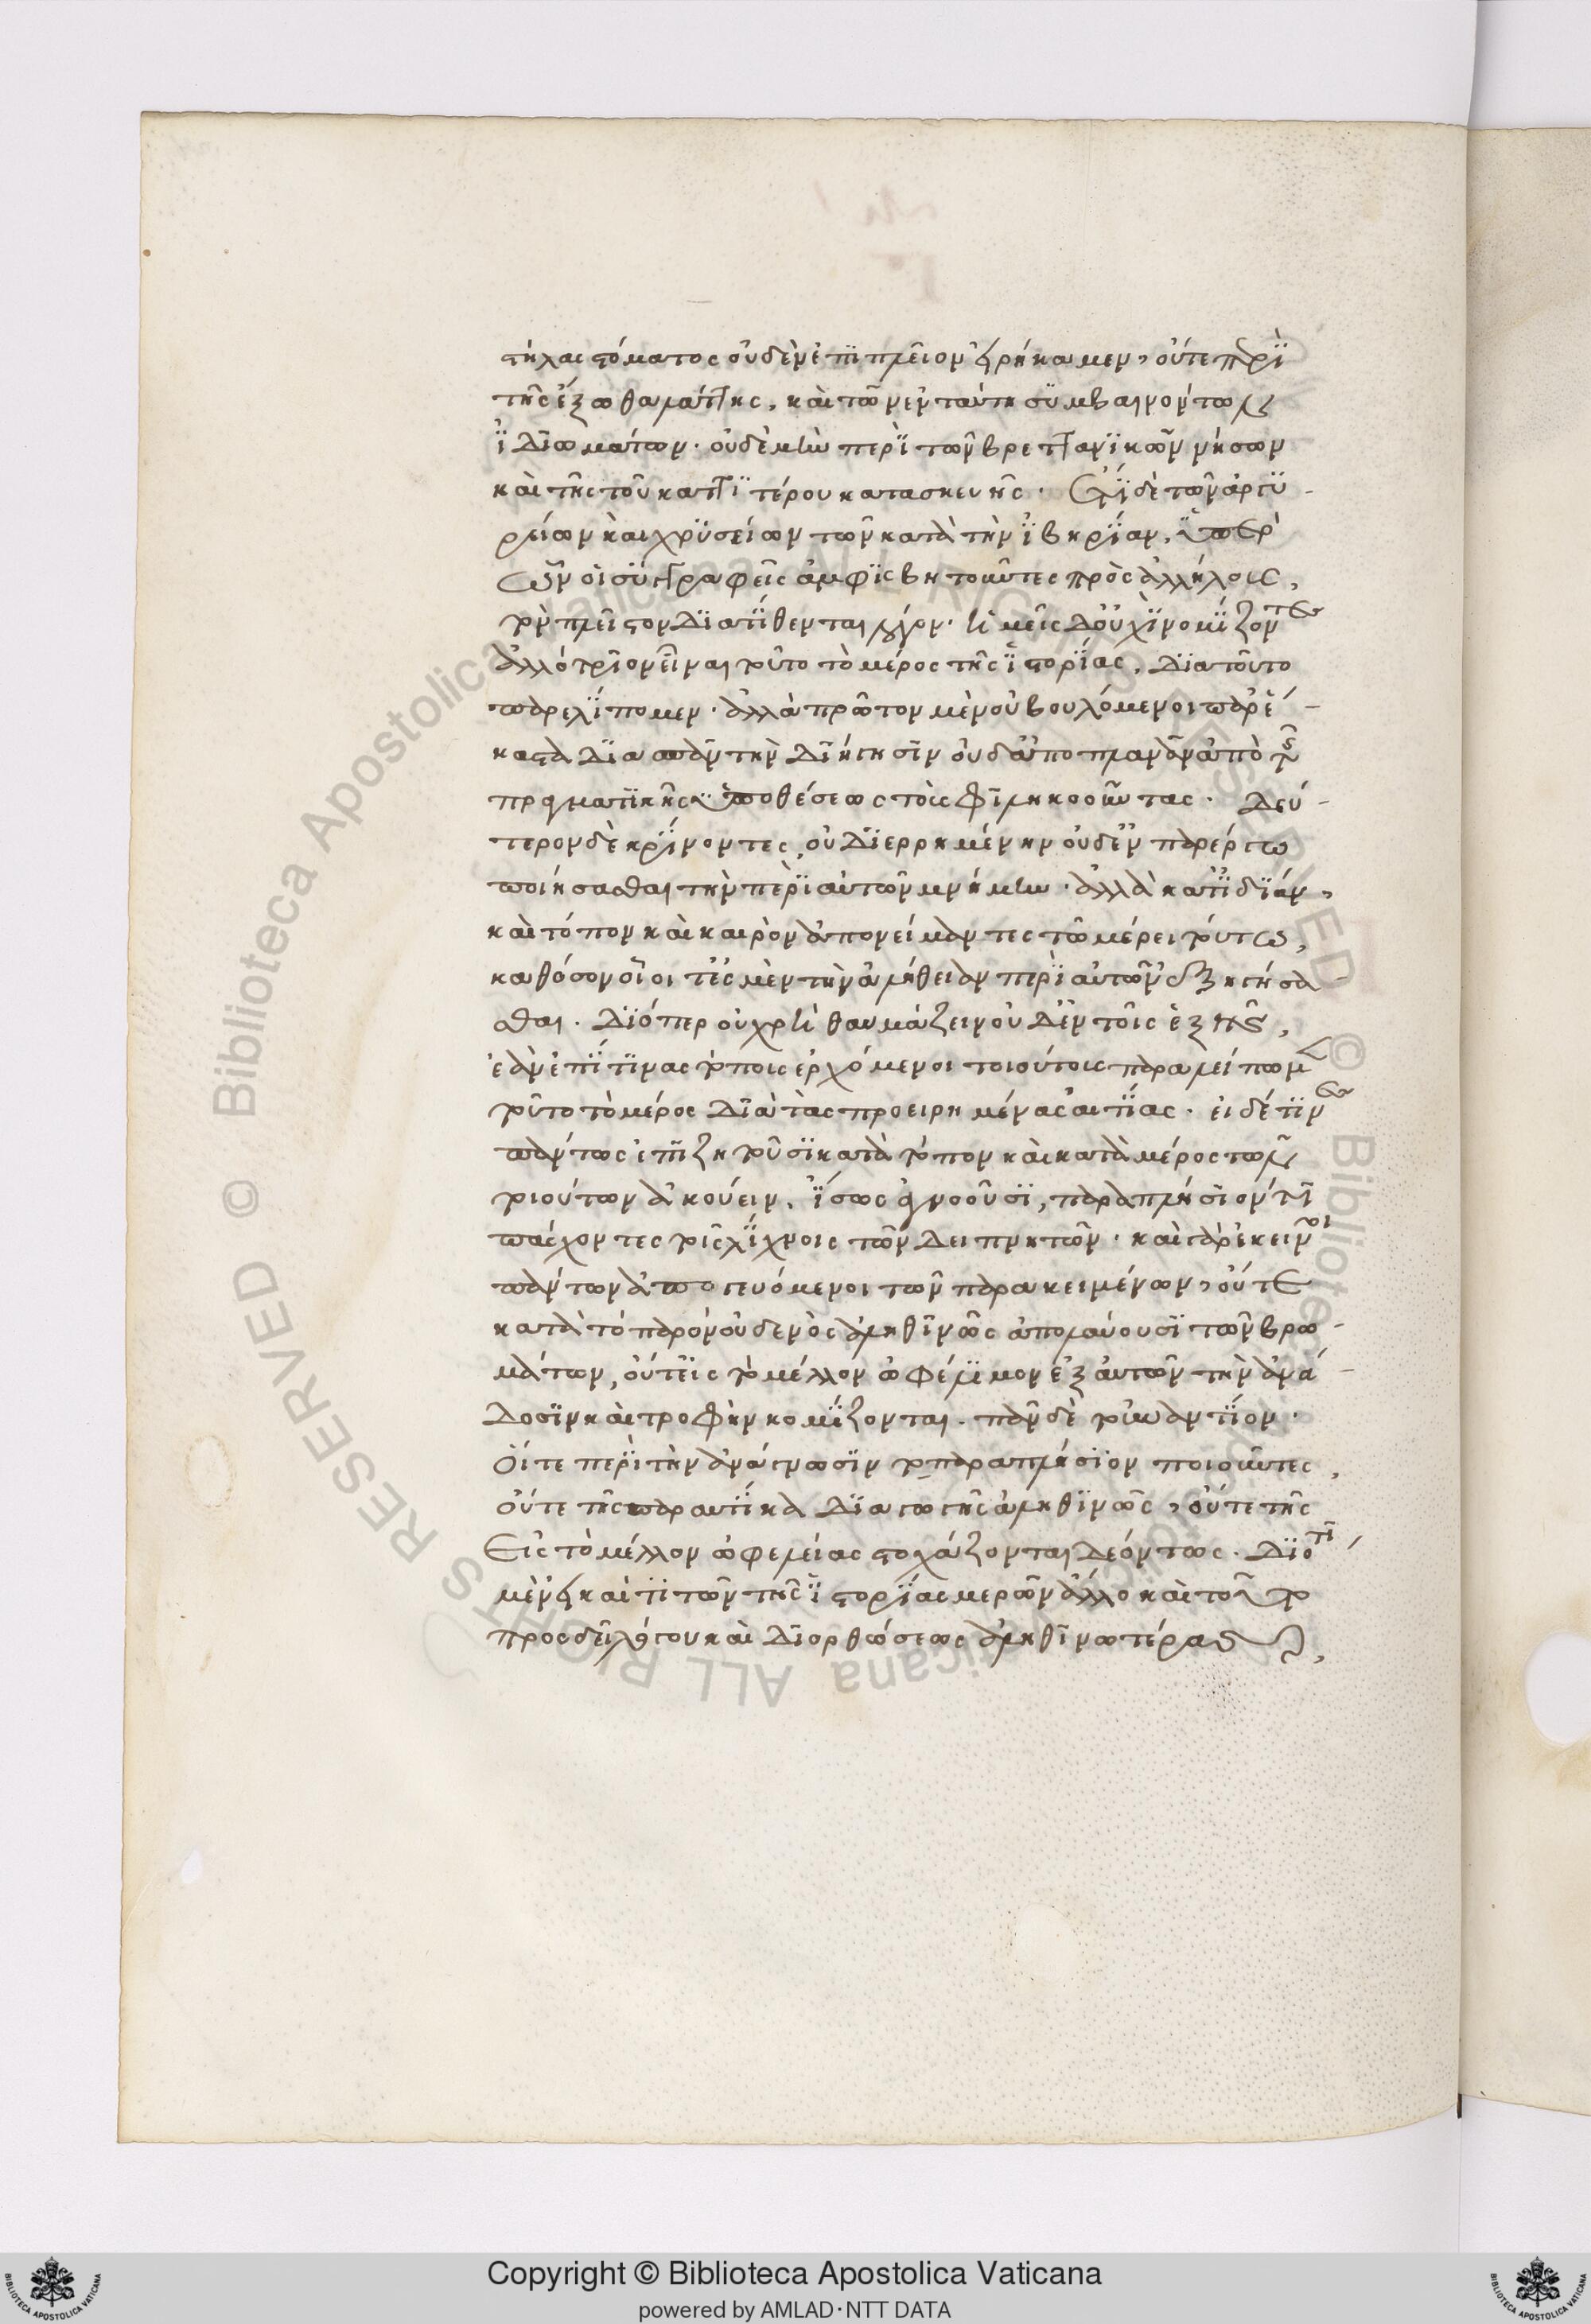 στήλαις στόματος οὐδὲν ἐπὶ πλεῖον εἰρήκαμεν, οὔτε περὶ
τῆς ἔξω θαλάττης, καὶ τῶν ἐν ταύτη συμβαινόντων
ἰδιωμάτων. οὐδὲ μὴν περὶ τῶν βρεττανικῶν νήσων
καὶ τῆς τοῦ καττιτέρου κατασκευῆς. ἔτι δὲ τῶν ἀργυ-
ρείων καὶ χρυσείων τῶν κατὰ τὴν ἰβηρίαν, ὑπὲρ
ὧν οἱ συγγραφεῖς ἀμφισβητοῦντες πρὸς ἀλλήλους,
τὸν πλεῖστον διατίθενται λόγον. ἡμεῖς δ' οὐχὶ νομίζοντες
ἀλλότριον εἶναι τοῦτο τὸ μέρος τῆς ἱστορίας, διατοῦτο
παρελίπομεν. ἀλλὰ πρῶτον μὲν οὐ βουλόμενοι παρ' ἕ-
καστα διασπᾶν τὴν διήγησιν οὐδ' ἀποπλανᾶν ἀπὸ τῆς
πραγματικῆς ὑποθέσεως τοὺς φιληκοοῦντας. δεύ-
τερον δὲ κρίνοντες, οὐ διερρημένην οὐδ' ἐν παρέργω
ποιήσασθαι τὴν περὶ αὐτῶν μνήμην. ἀλλὰ κατ' ἰδίαν,
καὶ τόπον καὶ καιρὸν ἀπονείμαντες τῶ μέρει τούτω,
καθόσον οἷοί τ' ἐσμὲν τὴν ἀλήθειαν περὶ αὐτῶν ἐξηγήσα-
σθαι. διόπερ οὐ χρὴ θαυμάζειν οὐδ' ἐν τοῖς ἑξῆς,
ἐὰν ἐπί τινας τόπους ἐρχόμενοι τοιούτους παραλείπωμεν
τοῦτο τὸ μέρος διὰ τὰς προειρημένας αἰτίας. εἰ δέ τινες
πάντως ἐπιζητοῦσι κατὰ τόπον καὶ κατὰ μέρος τῶν
τοιούτων ἀκούειν, ἴσως ἀγνοοῦσι, παραπλήσιόν τι
πάσχοντες τοῖς λίχνοις τῶν δειπνητῶν. καὶ γὰρ ἐκεῖνοι
πάντων ἀπογευόμενοι τῶν παρακειμένων, οὔτε
κατὰ τὸ παρὸν οὐδενὸς ἀληθινῶς ἀπολαύουσι τῶν βρω-
μάτων, οὔτ' εἰς τὸ μέλλον ὠφέλιμον ἐξ αὐτῶν τὴν ἀνά-
δοσιν καὶ τροφὴν κομίζονται. πᾶν δὲ τοὐναντίον.
Οἵ τε περὶ τὴν ἀνάγνωσιν τὸ παραπλήσιον ποιοῦντες,
οὔτε τῆς παραυτίκα διαγωγῆς ἀληθινῶς, οὔτε τῆς
εἰς τὸ μέλλον ὠφελείας στοχάζονται δεόντως. διότι
μὲν εἰ καί τι τῶν τῆς ἱστορίας μερῶν ἄλλο καὶ τοῦτο
προσδεῖ λόγου καὶ διορθώσεως ἀληθινωτέρας,
Copyright © Biblioteca Apostolica Vaticana
powered by AMLAD·NTT DATA